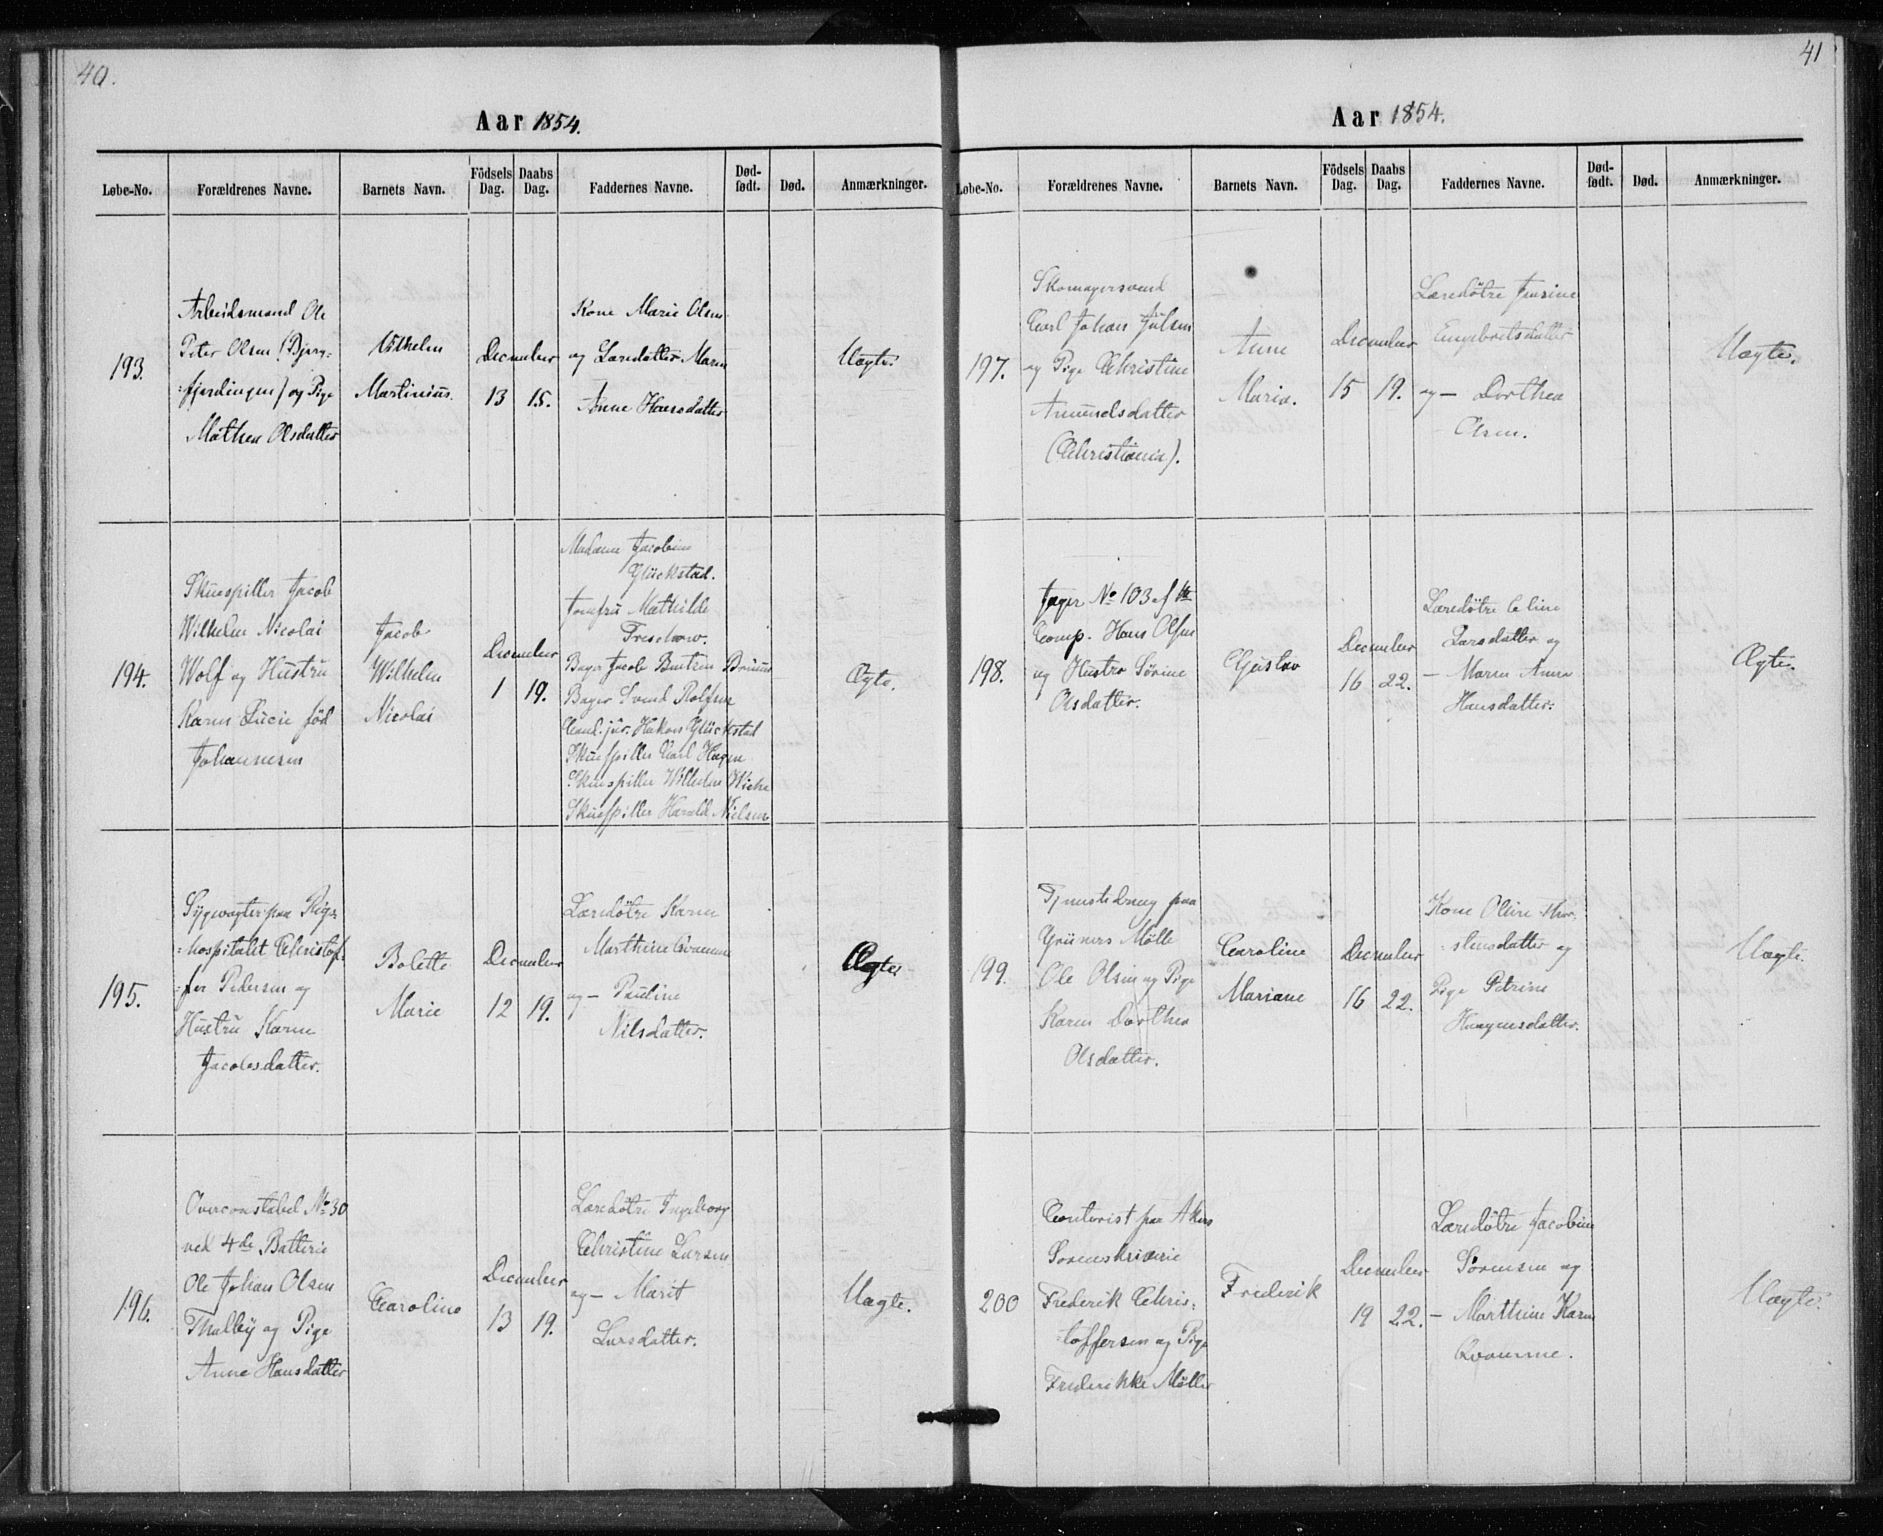 40.
Aar 1854.
Løbe-No. Forældrenes Navne. Barnets Navn. Födsels Dag. Daabs Dag. Faddernes Navne. Død-født. Død. Anmærkninger.
193.
Arbeidsmand Ole
Peter Olsen (Bjerg-
:fjerdingen) og Pige
Mathea Olsdatter
Vilhelm
Martinius.
December
13 15.
Kone Marie Olsen
og Læredatter Maren
Anne Hansdatter
Uægte.
194.
Skuespiller Jacob
Wilhelm Nicolai
Wolf og Hustru
Karen Lucie föd
Johannesen
Jacob
Wilhelm
Nicolai
December
1 19.
Madame Jacobine
Glückstad.
Jomfru Mathilde
Treschow.
Bager Jacob Bentsen Bruun
Bager Svend Rolfsen
Cand. jur. Hakon Glückstad
Skuespiller Carl Hagen
Skuespiller Wilhelm Wiehe
Skuespiller Harald Nielsen
Ægte.
195.
Sygevogter paa Rigs-
:hospitalet Christof-
:fer Pedersen og
Hustru Karen
Jacobsdatter.
Bolette
Marie
December
12 19.
Læredøtre Karen
Marthine Qvamme
og — Pauline
Nilsdatter.
Ægte
196.
Overconstabel No 30
ved 4de Batterie
Ole Johan Olsen
Thalby og Pige
Anne Hansdatter
Caroline
December
13 19.
Læredøtre Ingeborg
Christine Larsen
og — Marit
Larsdatter.
Uægte.
41
Aar 1854.
Løbe-No. Forældrenes Navne. Barnets Navn. Födsels Dag. Daabs Dag. Faddernes Navne. Død-født. Død. Anmærkninger.
197.
Skomagersvend
Carl Johan Julsen
og Pige Christine
Amundsdatter
(Christiania).
Anne
Maria.
December
15 19.
Læredøtre Jensine
Engebretsdatter
og — Dorthea
Olsen.
Uægte.
198.
Jæger No 103 af
Comp. Hans Olsen
og Hustro Sørine
Olsdatter.
Gustav
December
16 22.
Læredøtre Eline
Larsdatter og
— Maren Anna
Hansdatter.
Ægte.
199.
Tjenestedreng paa
Grüners Mølle
Ole Olsen og Pige
Karen Dorthea
Olsdatter.
Caroline
Mariane
December
16 22.
Kone Oline Thor-
:stensdatter og
Pige Petrine
Haagensdatter.
Uægte.
200
Contorist paa Akers
Sorenskriverie
Frederik Chris-
:toffersen og Pige
Frederikke Møller
Frederik
December
19 22.
Læredøtre Jacobine
Sørensen og
— Marthine Karen
Qvamme.
Uægte.